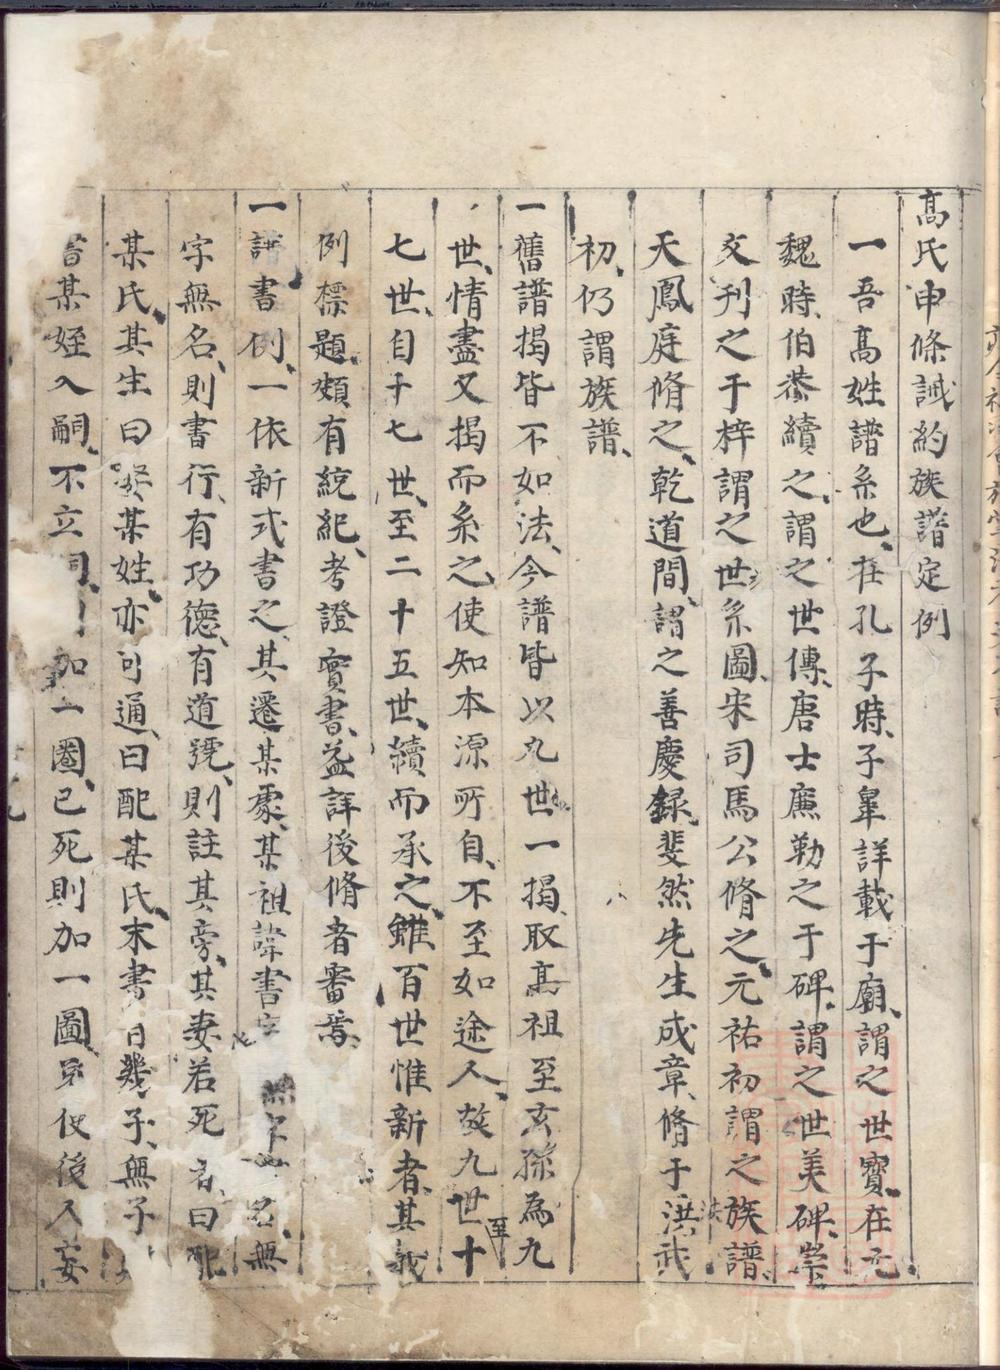 高氏申條誡約族譜定例
一吾高姓譜系也、在孔子時、子皐詳載于廟、謂之世寶、在元
魏時、伯恭續之、謂之世傳、唐士廉勒之于碑、謂之世美碑、崇
文刊之于梓謂之世系圖、宋司馬公脩之、元祐初謂之族譜、
天鳳庭脩之、乾道間、謂之善慶録、斐然先生成章、脩于洪武
初、仍謂族譜、
一舊譜揭皆不如法、今譜皆以九世一揭、取高祖至玄孫為九
世、情盡又揭而系之、使知本源所自、不至如途人、故九世至十
七世、自十七世、至二十五世、續而承之、雖百世惟新者、其義
例標題、頗有統紀、考證實書、益詳後脩者審焉、
一譜書例、一依新式書之、其遷某處、某祖諱書字名、無
字無名、則書行、有功德、有道號、則註其旁、其妻若死者、曰配
某氏、其生曰娶某姓、亦可通、曰配某氏、末書曰幾子、無子
書某姪入嗣、不立嗣、加一圈、已死則加一圖、使後人妄